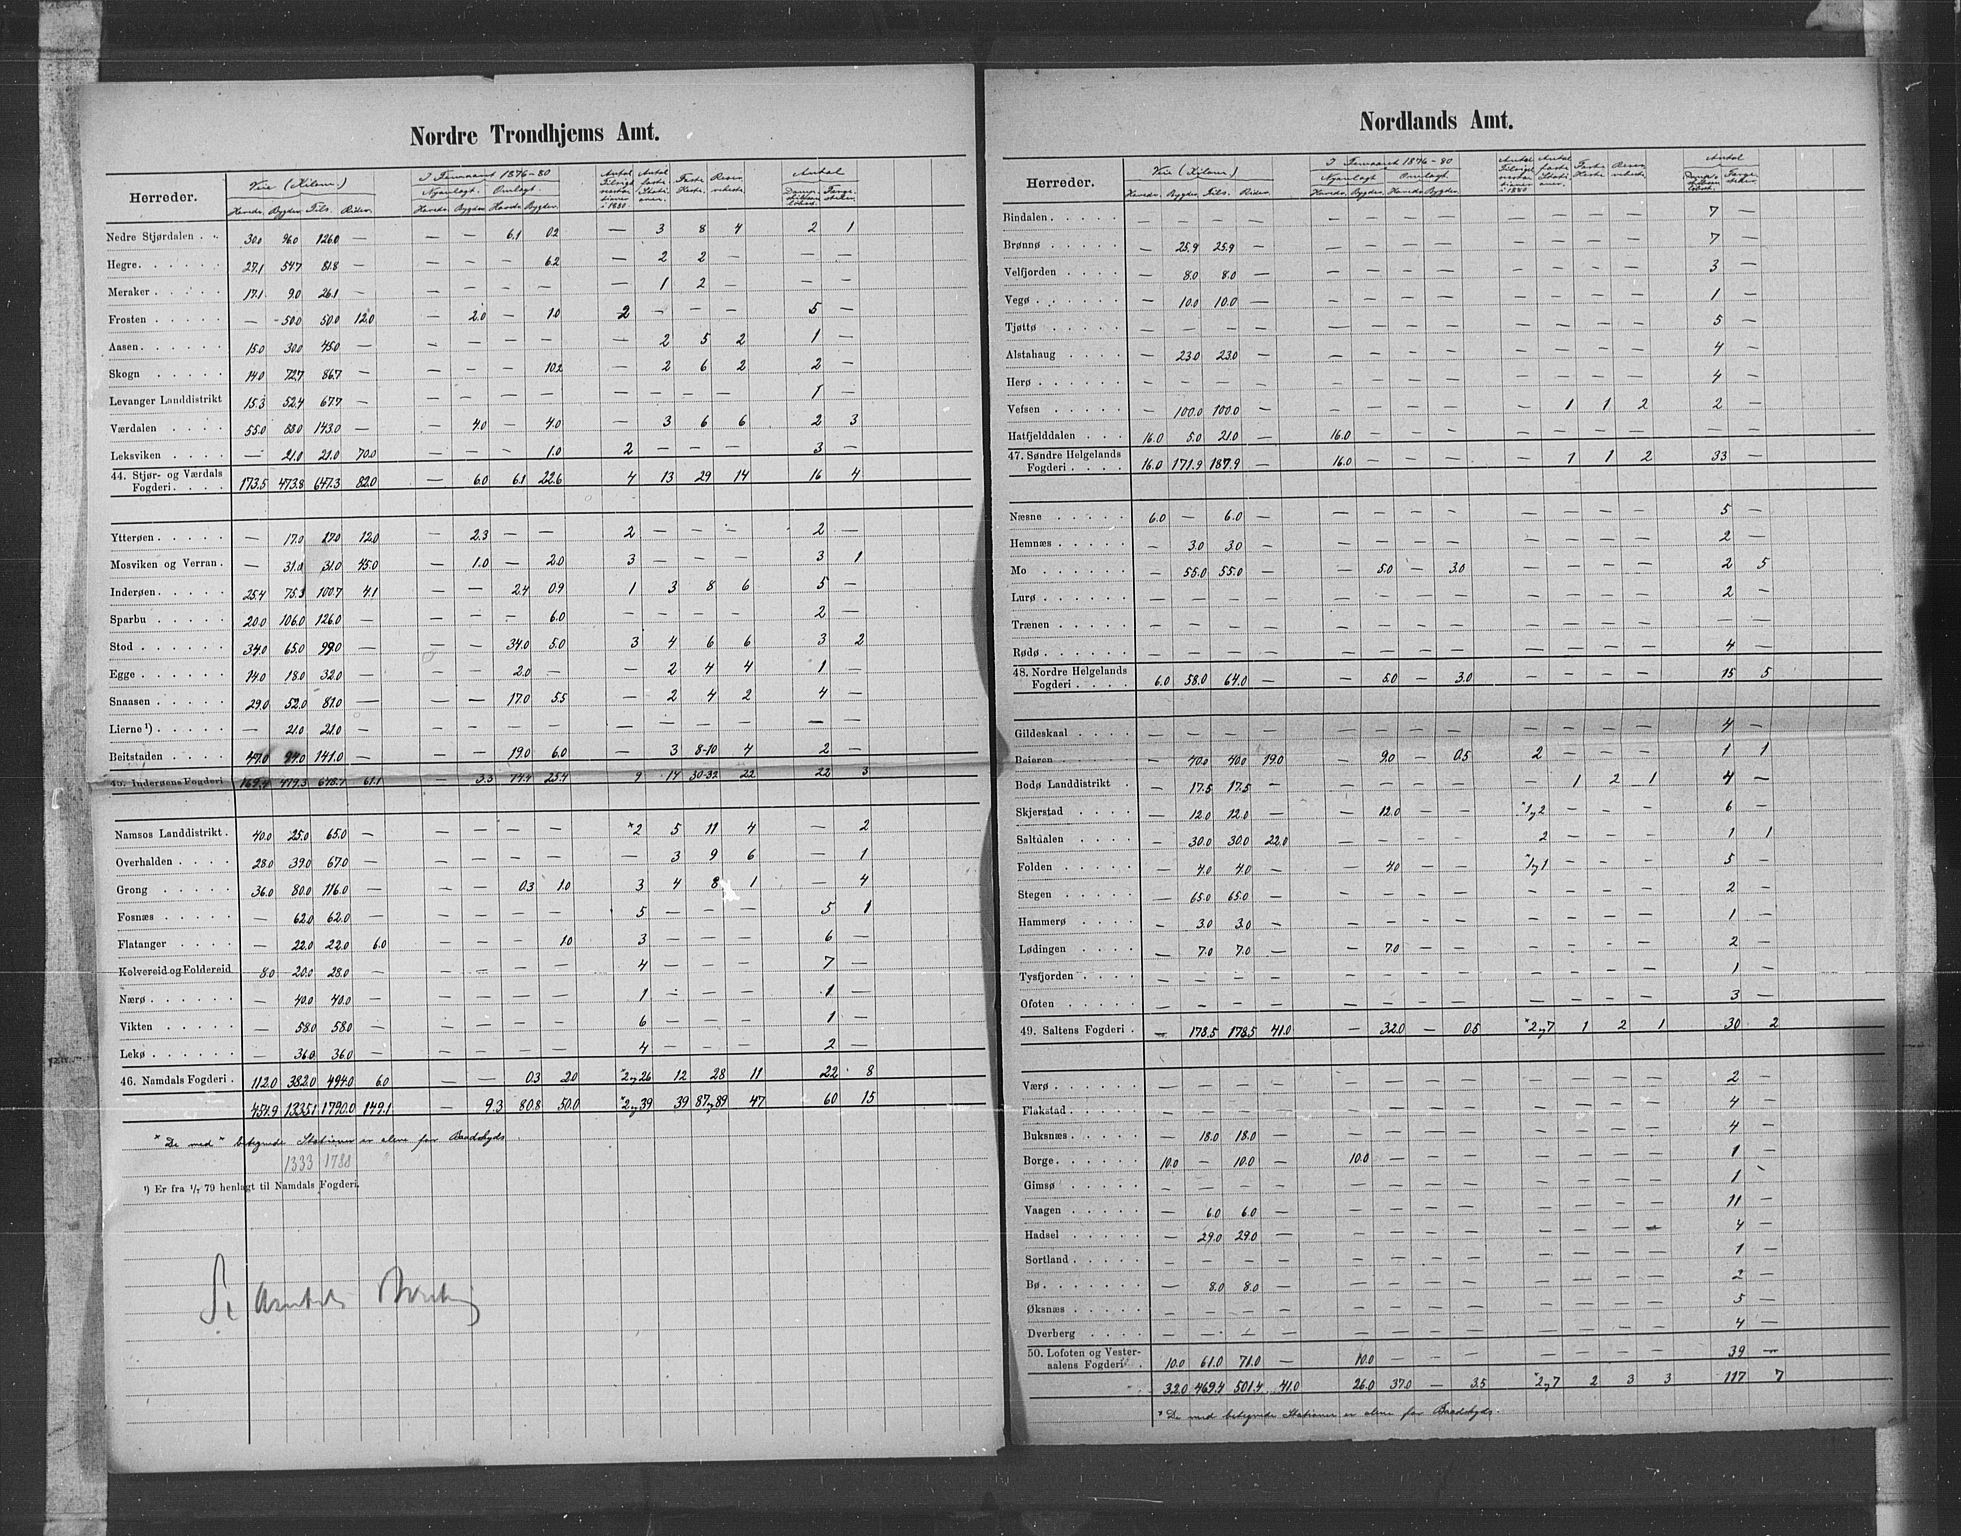 Nordre Trondhjems Amt.
Herreder. Veie (Kilom.) I Femaaret 1876-80 Antal Tilsigelsesstationer i 1880 Antal faste Stationer. Faste Heste. Reserveheste. Antal
Nyanlagt. Omlagt. Dampskibsanløbssted. Færgesteder.
Hovedv. Bygdev. Tils. Ridev. Hovedv. Bygdev. Hovedv. Bygdev.
Nedre Stjørdalen . . 30.0 96.0 126.0 — — — 6.1 0.2 — 3 8 4 2 1
Hegre . . . . . . 27.1 54.7 81.8 — — — — 6.2 — 2 2 — — —
Meraker . . . . . 17.1 9.0 26.1 — — — — — — 1 2 — — —
Frosten . . . . . — 50.0 50.0 12.0 — 2.0 — 1.0 2 — — — 5 —
Aasen . . . . . . 15.0 30.0 45.0 — — — — — — 2 5 2 1 —
Skogn . . . . . 14.0 72.7 86.7 — — — — 10.2 — 2 6 2 2 —
Levanger Landdistrikt 15.3 52.4 67.7 — — — — — — — — — 1 —
Værdalen . . . . 55.0 88.0 143.0 — — 4.0 — 4.0 — 3 6 6 2 3
Leksviken . . . . — 21.0 21.0 70.0 — — — 1.0 2 — — — 3 —
44. Stjør- og Værdals
Fogderi . . . . 173.5 473.8 647.3 82.0 — 6.0 6.1 22.6 4 13 29 14 16 4
Ytterøen . . . . . — 17.0 17.0 12.0 — 2.3 — — 2 — — — 2 —
Mosviken og Verran . — 31.0 31.0 45.0 — 1.0 — 2.0 3 — — — 3 1
Inderøen . . . . . 25.4 75.3 100.7 4.1 — — 2.4 0.9 1 3 8 6 5 —
Sparbu . . . . . 20.0 106.0 126.0 — — — — 6.0 — — — — 2 —
Stod . . . . . . 34.0 65.0 99.0 — — — 34.0 5.0 3 4 6 6 3 2
Egge . . . . . . 14.0 18.0 32.0 — — — 2.0 — — 2 4 4 1 —
Snaasen . . . . . 29.0 52.0 81.0 — — — 17.0 5.5 — 2 4 2 4 —
Lierne ¹) . . . . . — 21.0 21.0 — — — — — — — — — — —
Beitstaden . . . . 47.0 94.0 141.0 — — — 19.0 6.0 — 3 8-10 4 2 —
45. Inderøens Fogderi 169.4 479.3 648.7 61.1 — 3.3 74.4 25.4 9 14 30-32 22 22 3
Namsos Landdistrikt . 40.0 25.0 65.0 — — — — — *2 5 11 4 — 2
Overhalden . . . . 28.0 39.0 67.0 — — — — — — 3 9 6 — 1
Grong . . . . . 36.0 80.0 116.0 — — — 0.3 1.0 3 4 8 1 — 4
Fosnæs . . . . . — 62.0 62.0 — — — — — 5 — — — 5 1
Flatanger . . . . — 22.0 22.0 6.0 — — — 1.0 3 — — — 6 —
Kolvereid og Foldereid 8.0 20.0 28.0 — — — — — 4 — — — 7 —
Nærø . . . . . . — 40.0 40.0 — — — — — 1 — — — 1 —
Vikten . . . . . — 58.0 58.0 — — — — — 6 — — — 1 —
Lekø . . . . . . — 36.0 36.0 — — — — — 4 — — — 2 —
46. Namdals Fogderi . 112.0 382.0 494.0 6.0 — — 0.3 2.0 *2 og 26 12 28 11 22 8
454.9 1335.1 1790.0 149.1 — 9.3 80.8 50.0 *2 og 39 39 87 og 89 47 60 15
* De med * betegnede Stationer er alene for Baadskyds.
1333 1788
¹) Er fra ¹/₇ 79 henlagt til Namdals Fogderi.
Nordlands Amt.
Herreder. Veie (Kilom.) I Femaaret 1876-80 Antal Tilsigelsesstationer i 1880 Antal faste Stationer. Faste Heste. Reserveheste. Antal
Nyanlagt. Omlagt. Dampskibsanløbssted. Færgesteder.
Hovedv. Bygdev. Tils. Ridev. Hovedv. Bygdev. Hovedv. Bygdev.
Bindalen . . . . . — — — — — — — — — — — — 7 —
Brønnø . . . . . — 25.9 25.9 — — — — — — — — — 7 —
Velfjorden . . . . — 8.0 8.0 — — — — — — — — — 3 —
Vegø . . . . . . — 10.0 10.0 — — — — — — — — — 1 —
Tjøttø . . . . . — — — — — — — — — — — — 5 —
Alstahaug . . . . — 23.0 23.0 — — — — — — — — — 4 —
Herø . . . . . . — — — — — — — — — — — — 4 —
Vefsen . . . . . — 100.0 100.0 — — — — — — 1 1 2 2 —
Hatfjelddalen . . . 16.0 5.0 21.0 — 16.0 — — — — — — — — —
47. Søndre Helgelands
Fogderi . . . . 16.0 171.9 187.9 — 16.0 — — — — 1 1 2 33 —
Næsne . . . . . 6.0 — 6.0 — — — — — — — — — 5 —
Hemnæs . . . . . — 3.0 3.0 — — — — — — — — — 2 —
Mo . . . . . . — 55.0 55.0 — — 5.0 — 3.0 — — — — 2 5
Lurø . . . . . . — — — — — — — — — — — — 2 —
Trænen . . . . . — — — — — — — — — — — — — —
Rødø . . . . . . — — — — — — — — — — — — 4 —
48. Nordre Helgelands
Fogderi . . . . 6.0 58.0 64.0 — — 5.0 — 3.0 — — — — 15 5
Gildeskaal . . . . — — — — — — — — — — — — 4 —
Beieren . . . . . — 40.0 40.0 19.0 — 9.0 — 0.5 2 — — — 1 1
Bodø Landdistrikt . — 17.5 17.5 — — — — — — 1 2 1 4 —
Skjerstad . . . . — 12.0 12.0 — — 12.0 — — *1 og 2 — — — 6 —
Saltdalen . . . . — 30.0 30.0 22.0 — — — — 2 — — — 1 1
Folden . . . . . — 4.0 4.0 — — 4.0 — — *1 og 1 — — — 5 —
Stegen . . . . . — 65.0 65.0 — — — — — — — — — 2 —
Hammerø . . . . — 3.0 3.0 — — — — — — — — — 1 —
Lødingen . . . . — 7.0 7.0 — — 7.0 — — — — — — 2 —
Tysfjorden . . . . — — — — — — — — — — — — 1 —
Ofoten . . . . . — — — — — — — — — — — — 3 —
49. Saltens Fogderi . — 178.5 178.5 41.0 — 32.0 — 0.5 *2 og 7 1 2 1 30 2
Værø . . . . . . — — — — — — — — — — — — 2 —
Flakstad . . . . . — — — — — — — — — — — — 4 —
Buksnæs . . . . . — 18.0 18.0 — — — — — — — — — 4 —
Borge . . . . . . 10.0 — 10.0 — 10.0 — — — — — — — 1 —
Gimsø . . . . . — — — — — — — — — — — — 1 —
Vaagen . . . . . — 6.0 6.0 — — — — — — — — — 11 —
Hadsel . . . . . — 29.0 29.0 — — — — — — — — — 4 —
Sortland . . . . . — — — — — — — — — — — — 1 —
Bø . . . . . . . — 8.0 8.0 — — — — — — — — — 2 —
Øksnæs . . . . . — — — — — — — — — — — — 5 —
Dverberg . . . . — — — — — — — — — — — — 4 —
50. Lofoten og Vester-
aalens Fogderi . 10.0 61.0 71.0 — 10.0 — — — — — — — 39 —
32.0 469.4 501.4 41.0 26.0 37.0 — 3.5 *2 og 7 2 3 3 117 7
* De med betegnede Stationer er alene for Baadskyds.